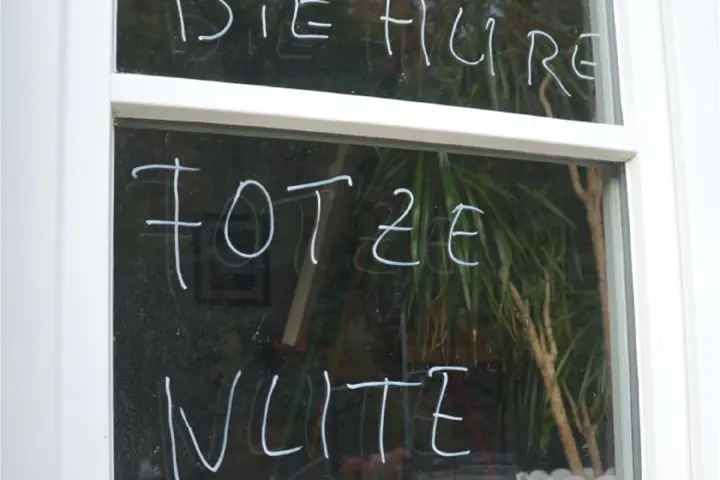 DIE HURE
FOTZE
NUTE